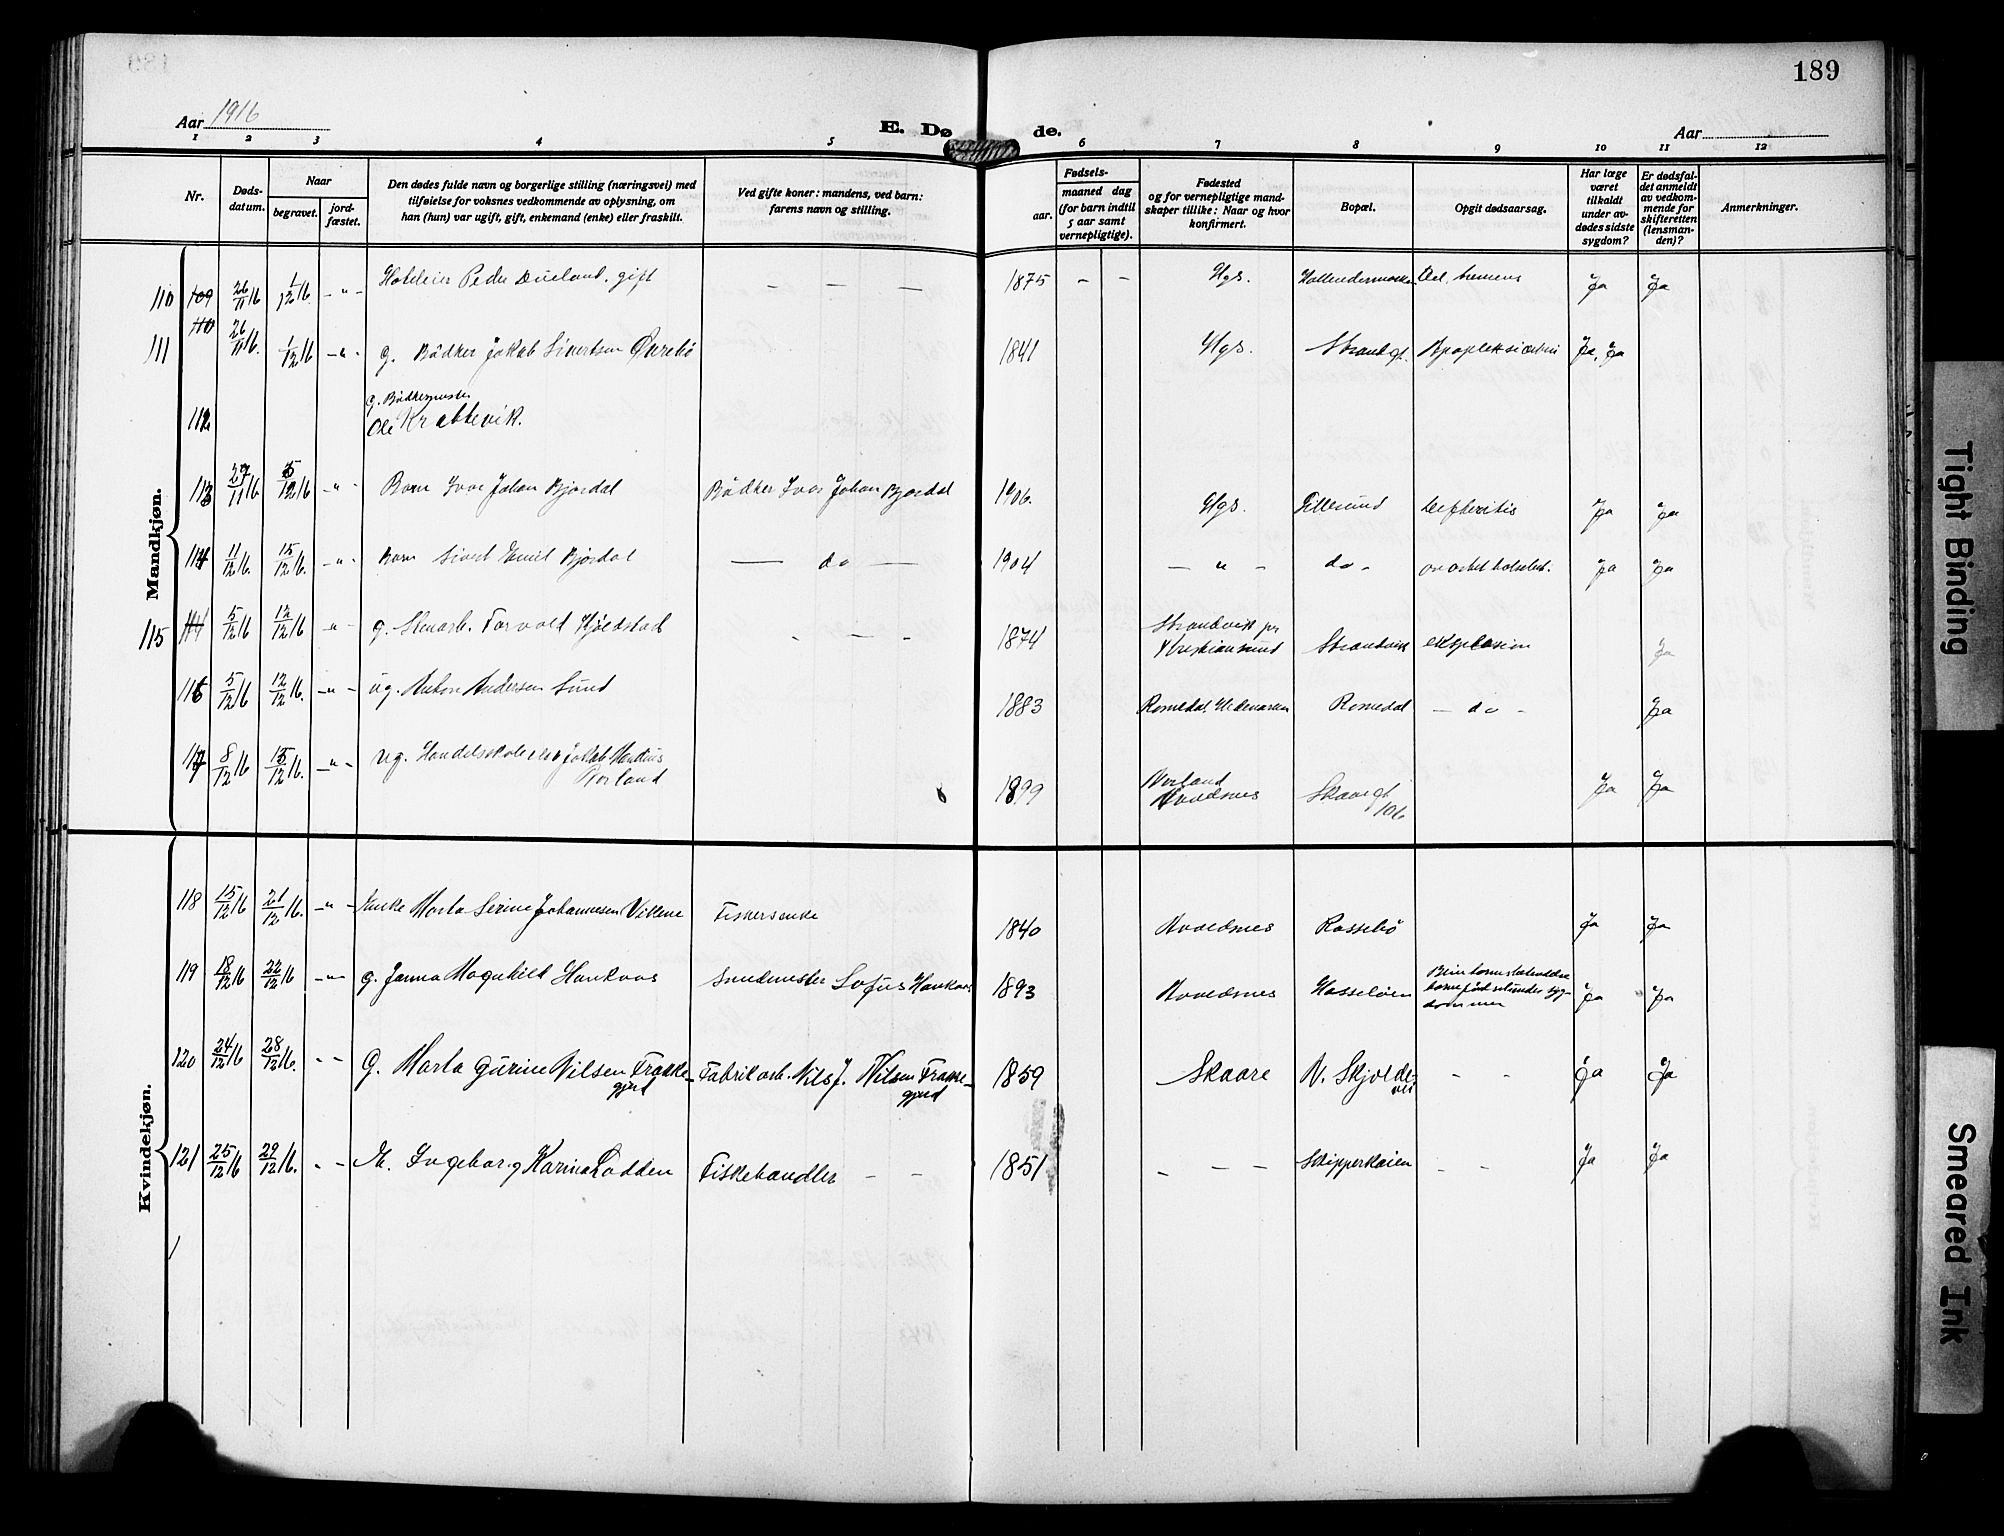 189
Aar 1916
E. Dø de.
Aar
1 2 3 4 5 6 7 8 9 10 11 12
Nr.
Døds-
datum.
Naar
begravet.
jord-
fæstet.
Den dødes fulde navn og borgerlige stilling (næringsvei) med
tilføielse for voksnes vedkommende av oplysning, om
han (hun) var ugift, gift, enkemand (enke) eller fraskilt.
Ved gifte koner: mandens, ved barn:
farens navn og stilling.
Fødsels-
aar.
maaned dag
(for barn indtil
5 aar samt
vernepligtige).
Fødested
og for vernepligtige mand-
skaper tillike: Naar og hvor
konfirmert.
Bopæl.
Opgit dødsaarsag.
Har læge
været
tilkaldt
under av-
dødes sidste
sygdom?
Er dødsfal-
det anmeldt
av vedkom-
mende for
skifteretten
(lensman-
den)?
Anmerkninger.
Mandkjøn.
110 109 26/11 16 1/12 16. - " - Peder Dueland, gift - - - 1875 - - Hgs. Del. tremens Ja Ja
111 110 26/11 16. 1/12 16 - " - g. Bödker Jakob Sivertsen 1841 Hgs. Strandgt. Ja, Ja
g. Bödkermester
112 Ole Krattevik.
113 27/11 16 5/12 16 - " - Barn Ivar Johan Bjordal Bödker Ivar Johan Bjordal 1906. Hgs. Lillesund Difteritis Ja Ja
114 11/12 16. 15/12 16. - " - Barn Sivert Emil Bjordal - do - 1904 - " - do - Ja Ja
115 114 5/12 16 12/12 16 - " - g. Stenarb. Torvald Kjöldstad - - - 1874 Strandvik pr
Kristiansund Strandvik eksplosion Ja
116 5/12 16 12/12 16. - " - ug. Anton Andersen Sund 1883 Romedal, Hedemarken Romedal - do - Ja
117 8/12 16 15/12 16. - " - ug. Handelsskoleelev Jakob
Norland 1899 Norland
Avaldsnes Skaaregt
106 Ja Ja
Kvindekjøn.
118 15/12 16 21/12 16. - " - Enke Marta Serine Johannesen Vikene Fiskersenke 1840 Avaldsnes Rossebö Ja Ja
119 18/12 16 22/12 16 - " - g. Janna Magnhild Haukaas Smedmester Sofus Haukaas 1893 Avaldsnes Hasselöen Ja Ja
120 24/12 16 28/12 16. - - G. Marta Gurine Nilsen Frakke-
gjerd Fabrikarb. Nils J. Nilsen Frakke-
gjerd 1859 Skaare N. Skjolda-
vei - - Ja Ja
121 25/12 16 29/12 16. - - Ingeborg Karina Lodden Fiskehandler - - 1851 - - - - Skipperkaien - - Ja Ja
Tight Binding
Smeared Ink